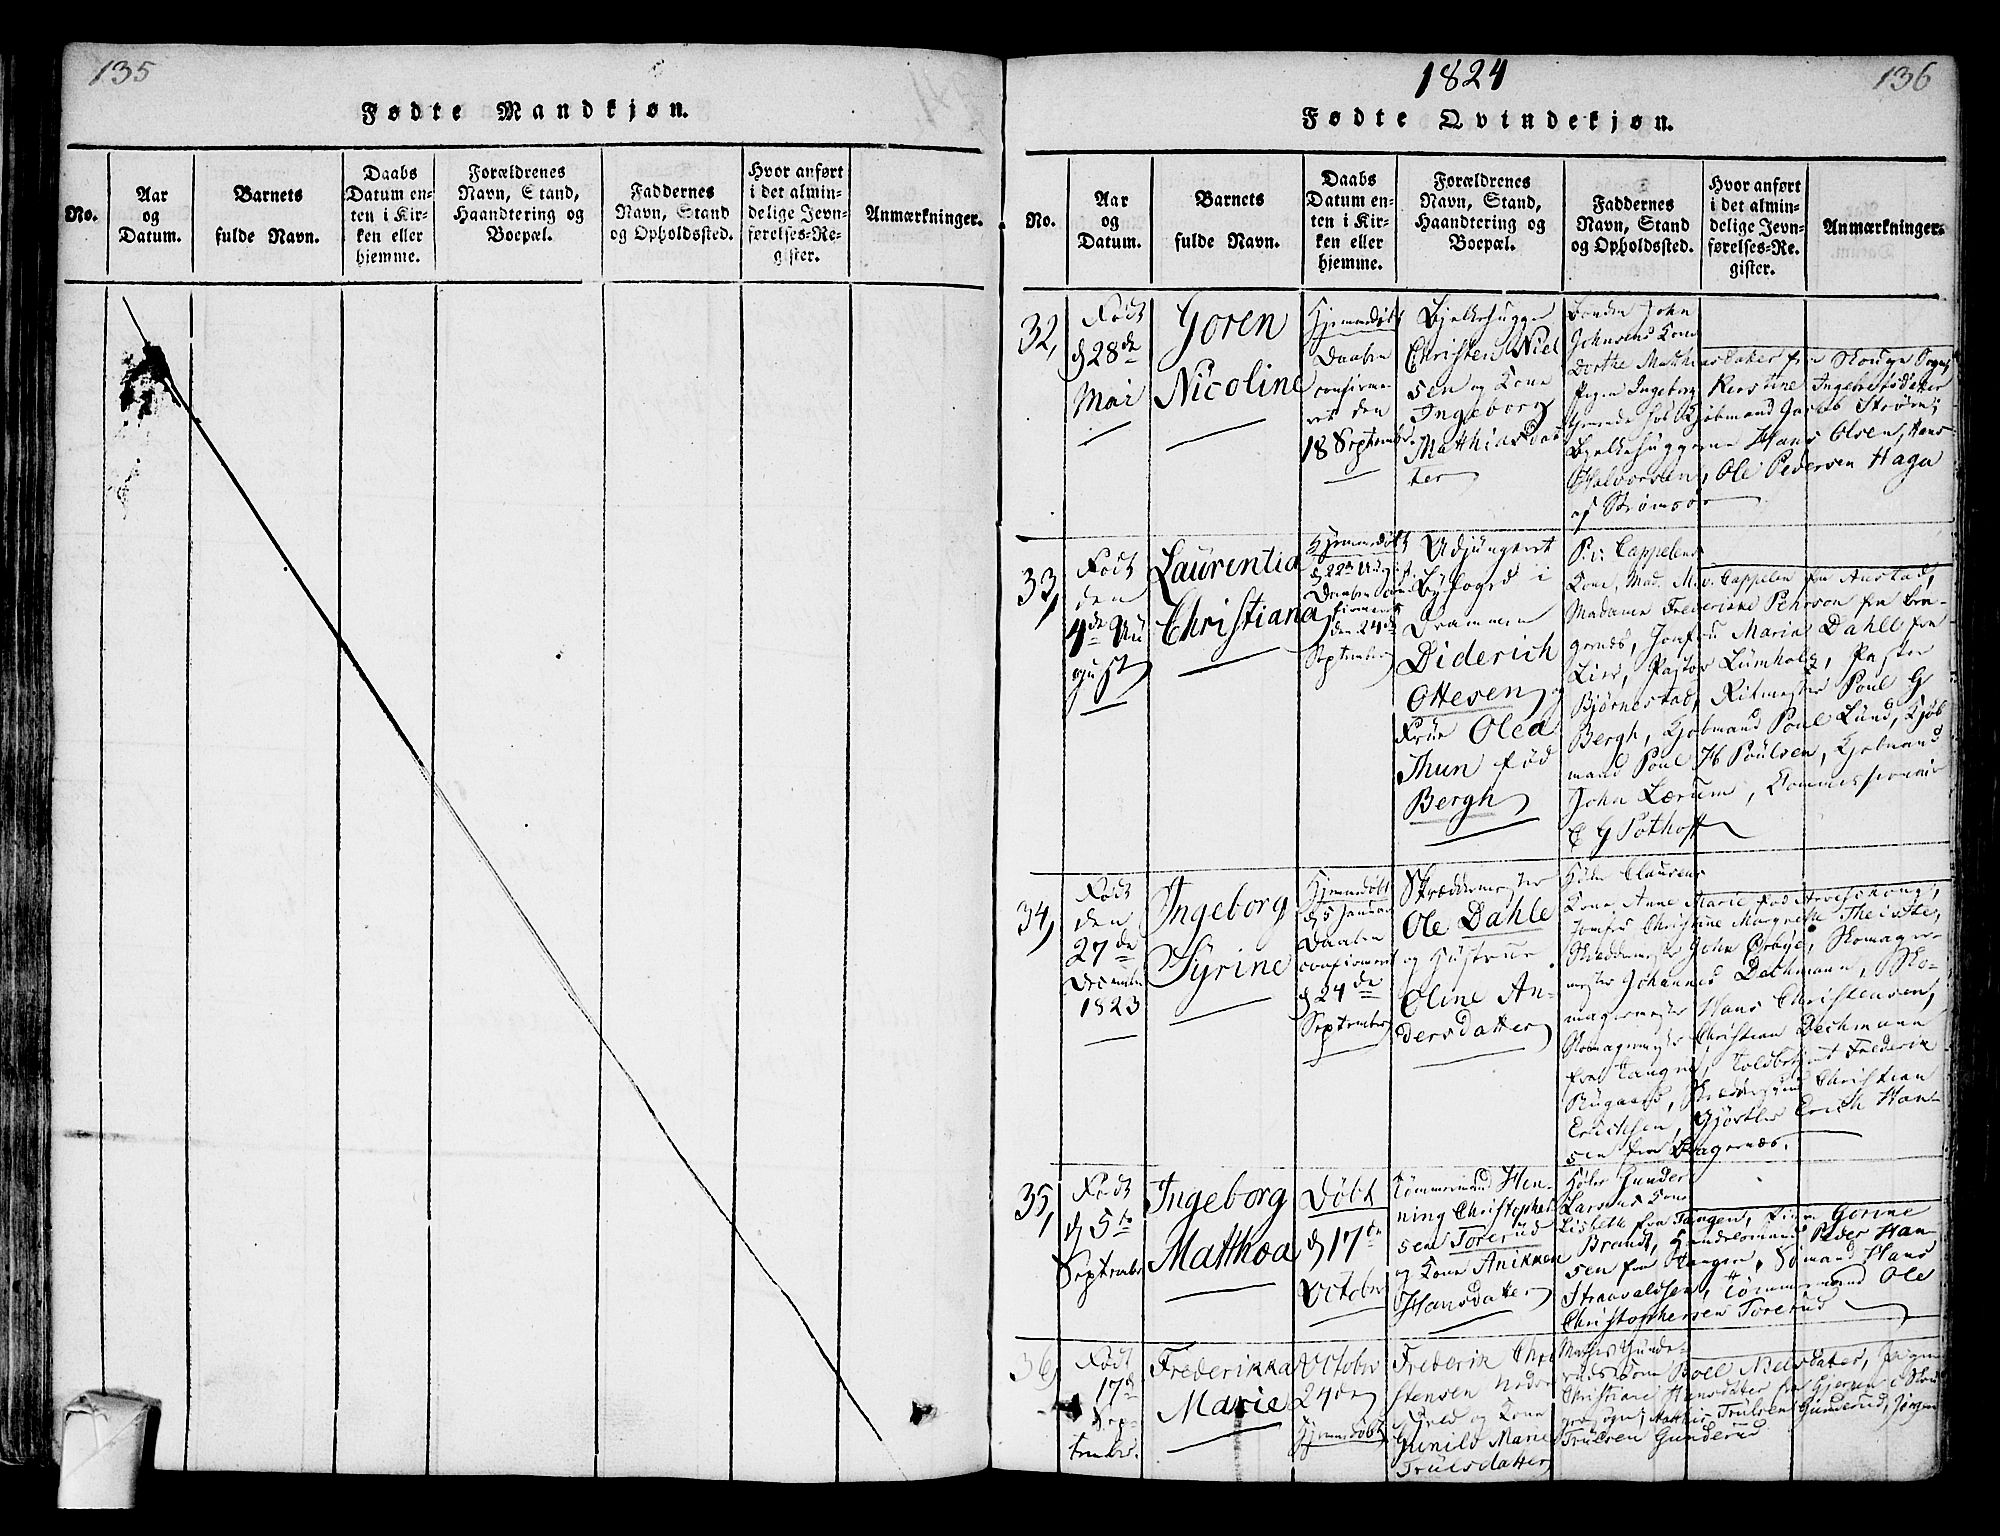 135
Fødte Mandkjøn.
No.
Aar
og
Datum.
Barnets
fulde Navn.
Daabs
Datum en-
ten i Kir-
ken eller
hjemme.
Forældrenes
Navn, Stand,
Haandtering og
Boepæl.
Faddernes
Navn, Stand
og Opholdssted.
Hvor anført
i det almin-
delige Jevn-
førelses-Re-
gister.
Anmærkninger.
1824
136
Fødte Qvindekjøn.
No.
Aar
og
Datum.
Barnets
fulde Navn.
Daabs
Datum en-
ten i Kir-
ken eller
hjemme.
Forældrenes
Navn, Stand,
Haandtering og
Boepæl.
Faddernes
Navn, Stand
og Opholdssted.
Hvor anført
i det almin-
delige Jevn-
førelses-Re-
gister.
Anmærkninger.
32,
Født
d 28de
Mai
Goren
Nicoline
Hjemmedøbt
Daaben
confirme
ret den
18 Septembr
Bjelkehugger
Christen Niel
sen og Kone
Ingeborg
Matthiasdat
ter
Bonden John
Johnsens Kone
Dorthe Matthiasdatter fra Skouge Sogn,
Pigen Ingeborg Kerstine Ingebretsdatter
tjenende hos Kjøbmand Jacob Strøm,
Bjelkehuggerne Hans Olsen, Hans
Halvorsen, Ole Pedersen Haga
af Strømsøe
33,
Født
den
4de Au
gust
Laurentia
Christiana
Hjemmedøbt
d 22 Aug
Daaben con
firmeret
den 24de
September
Adjungeret
Byfoged i
Drammen
Diderich
Ottesen og
Frue Olea
Thun fød
Bergh
P. v. Cappelens
Kone, Mad. M. v. Cappelen fra Austad,
Madame Frederikke Pehrson fra Bra-
gernæs, Jomfru Maria Dahll fra
Lier, Pastor Lumholz, Pastor
Bjørnestad, Ritmester Poul G
Bergh, Kjøbmand Poul Lund, Kjøb
mand Poul H Poulsen, Kjøbmand
John Lærum, Commissionair
C G Pothoff
34,
Født
den
27de
December
1823
Ingeborg
Syrine
Hjemmedøbt
d 5 Januar
Daaben
confirmeret
d 24de
September
Skræddermester
Ole Dahle
og Hustrue
Oline An-
dersdatter
Clausens
Kone Anne Marie fød
Jomfru Christine Margrethe Theiste,
Skræddermester John Ørbye, Skomager-
mester Johannes Dechmann, Sko-
magermester Hans Christensen,
Skomagermester Christian Dechmann
fra Tangen, Toldbetient Frederik
Rugaard, Christian
Erichsen, Gjørtler Erich Han-
sen fra Bragernæs.
35,
Født
d 5te
Septembr
Ingeborg
Matthea
Døbt
d 17te
October
Tømmermand Hen-
ning Christopher
sen Torerud
og Kone Anikken
Hansdatter
Gunder
Larsens Kone
Lisbeth fra Tangen, Gorine
Brandt, Handelsmand Peder Han-
sen fra Tangen, Sømand Hans
Straavaldsen, Tømmermand Ole
Christophersen Torerud
36,
Født
17de
Sep-
tember
Frederikka
Marie
October
24de
Hjemmedøbt
Frederik Chri
stensen
og Kone
Gunild Marie
Trulsdatter
Mathis Gunde-
ruds Kone Boel Nielsdatter, Pigen
Christiane Hansdatter fra Gjersøe i Skou
ger Sogn, Matthis Trulsen Gunderud, Jørgen
Trulsen Gunderud